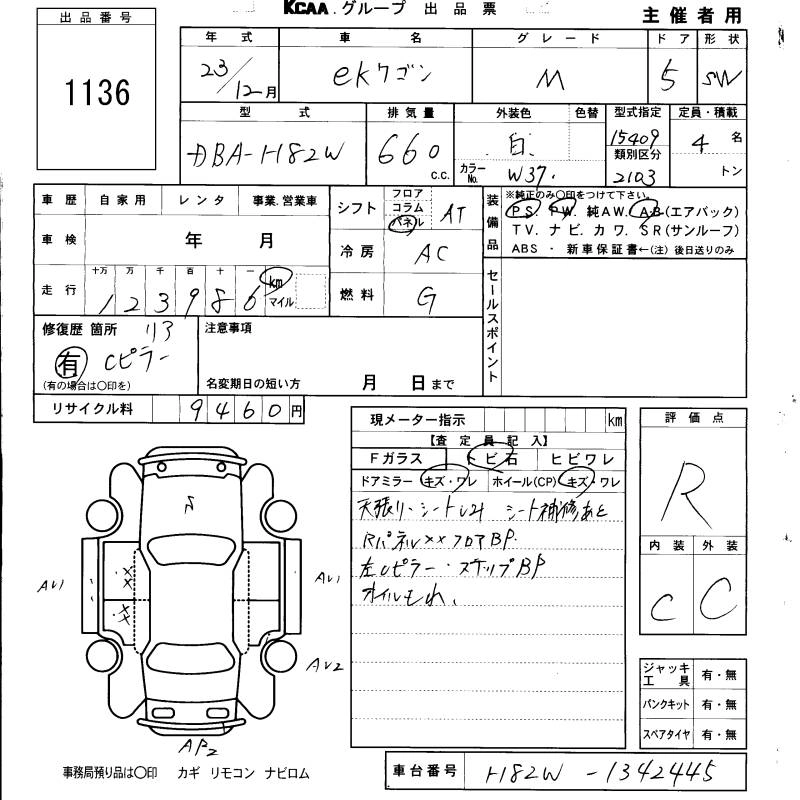 KCAA.グループ 出品票
主催者用
出品番号
1136
年式 車名 グレード ドア 形状
23/12月 ekワゴン M 5 SW
型式 排気量 外装色 色替 型式指定 定員・積載
DBA-H82W 660 c.c. 白 15409 4 名
類別区分
カラーNo. W37. 2103 トン
車歴 自家用 レンタ 事業.営業車
シフト フロア コラム パネル AT
装備品 ※純正のみ〇印をつけて下さい。
PS. PW. 純AW. AB(エアバック)
TV. ナビ. カワ. SR(サンルーフ)
ABS ・ 新車保証書←(注) 後日送りのみ
車検 年 月
冷房 AC
走行 十万 万 千 百 十 一 km マイル
123986
燃料 G
セールスポイント
修復歴 箇所 リア
有 Cピラー
(有の場合は〇印を)
注意事項
名変期日の短い方 月 日まで
リサイクル料 9460円
現メーター指示 km
【査定員記入】
Fガラス トビ石 ヒビワレ
ドアミラー キズ・ワレ ホイール(CP) キズ・ワレ
天張り・シートシミ シート補修あと
Rパネル×× フロアBP.
左Cピラー・ステップBP
オイルもれ、
評価点
R
内装 外装
C C
S
××
××
AU1
AU1
AU2
AP2
ジャッキ工具 有・無
パンクキット 有・無
スペアタイヤ 有・無
事務局預り品は〇印 カギ リモコン ナビロム
車台番号 H82W -1342445